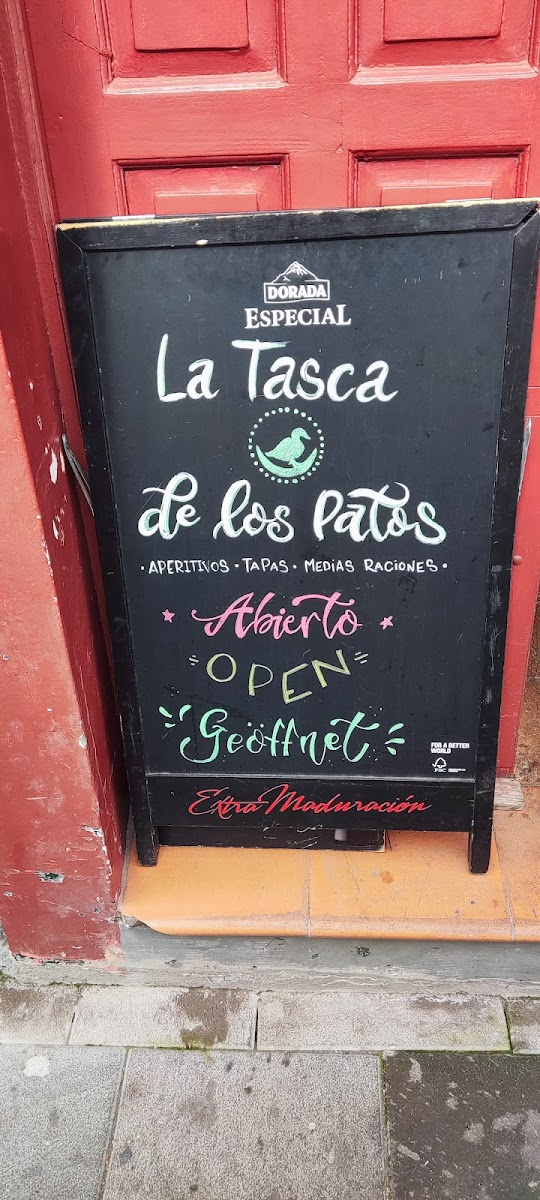 DORADA
ESPECIAL
La Tasca
de los Patos
· APERITIVOS · TAPAS · MEDIAS RACIONES ·
Abierto
OPEN
Geöffnet
FOR A BETTER
WORLD
FSC
Extra Maduración